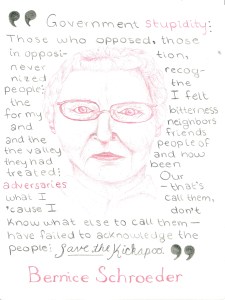 "Government stupidity:
Those who opposed, those
in opposi- tion,
never recog-
nized the
people; I felt
the bitterness
for my neighbors
and friends
and the people of
the valley and now
they had been
treated; Our
adversaries –that's
what I call them,
'cause I don't
know what else to call them—
have failed to acknowledge the
people: Save the Kickapoo."
Bernice Schroeder